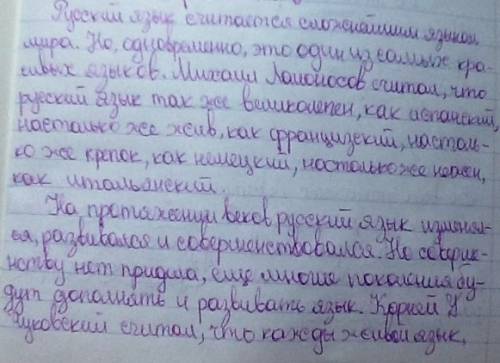 Русский язык считается сложнейшим языком
мира. Но, одновременно, это один из самых кра-
сивых языков. Михаил Ломоносов считал, что
русский язык так же великолепен, как испанский,
настолько же жив, как французский, насталь-
ко же крепок, как немецкий, настолько же нежен,
как итальянский.
На протяжении веков русский язык изменял-
ся, развивался и совершенствовался. Но соверше-
нству нет придела, ещё многие поколения бу-
дут дополнять и развивать язык. Корней
Чуковский считал, что кажды живой язык,